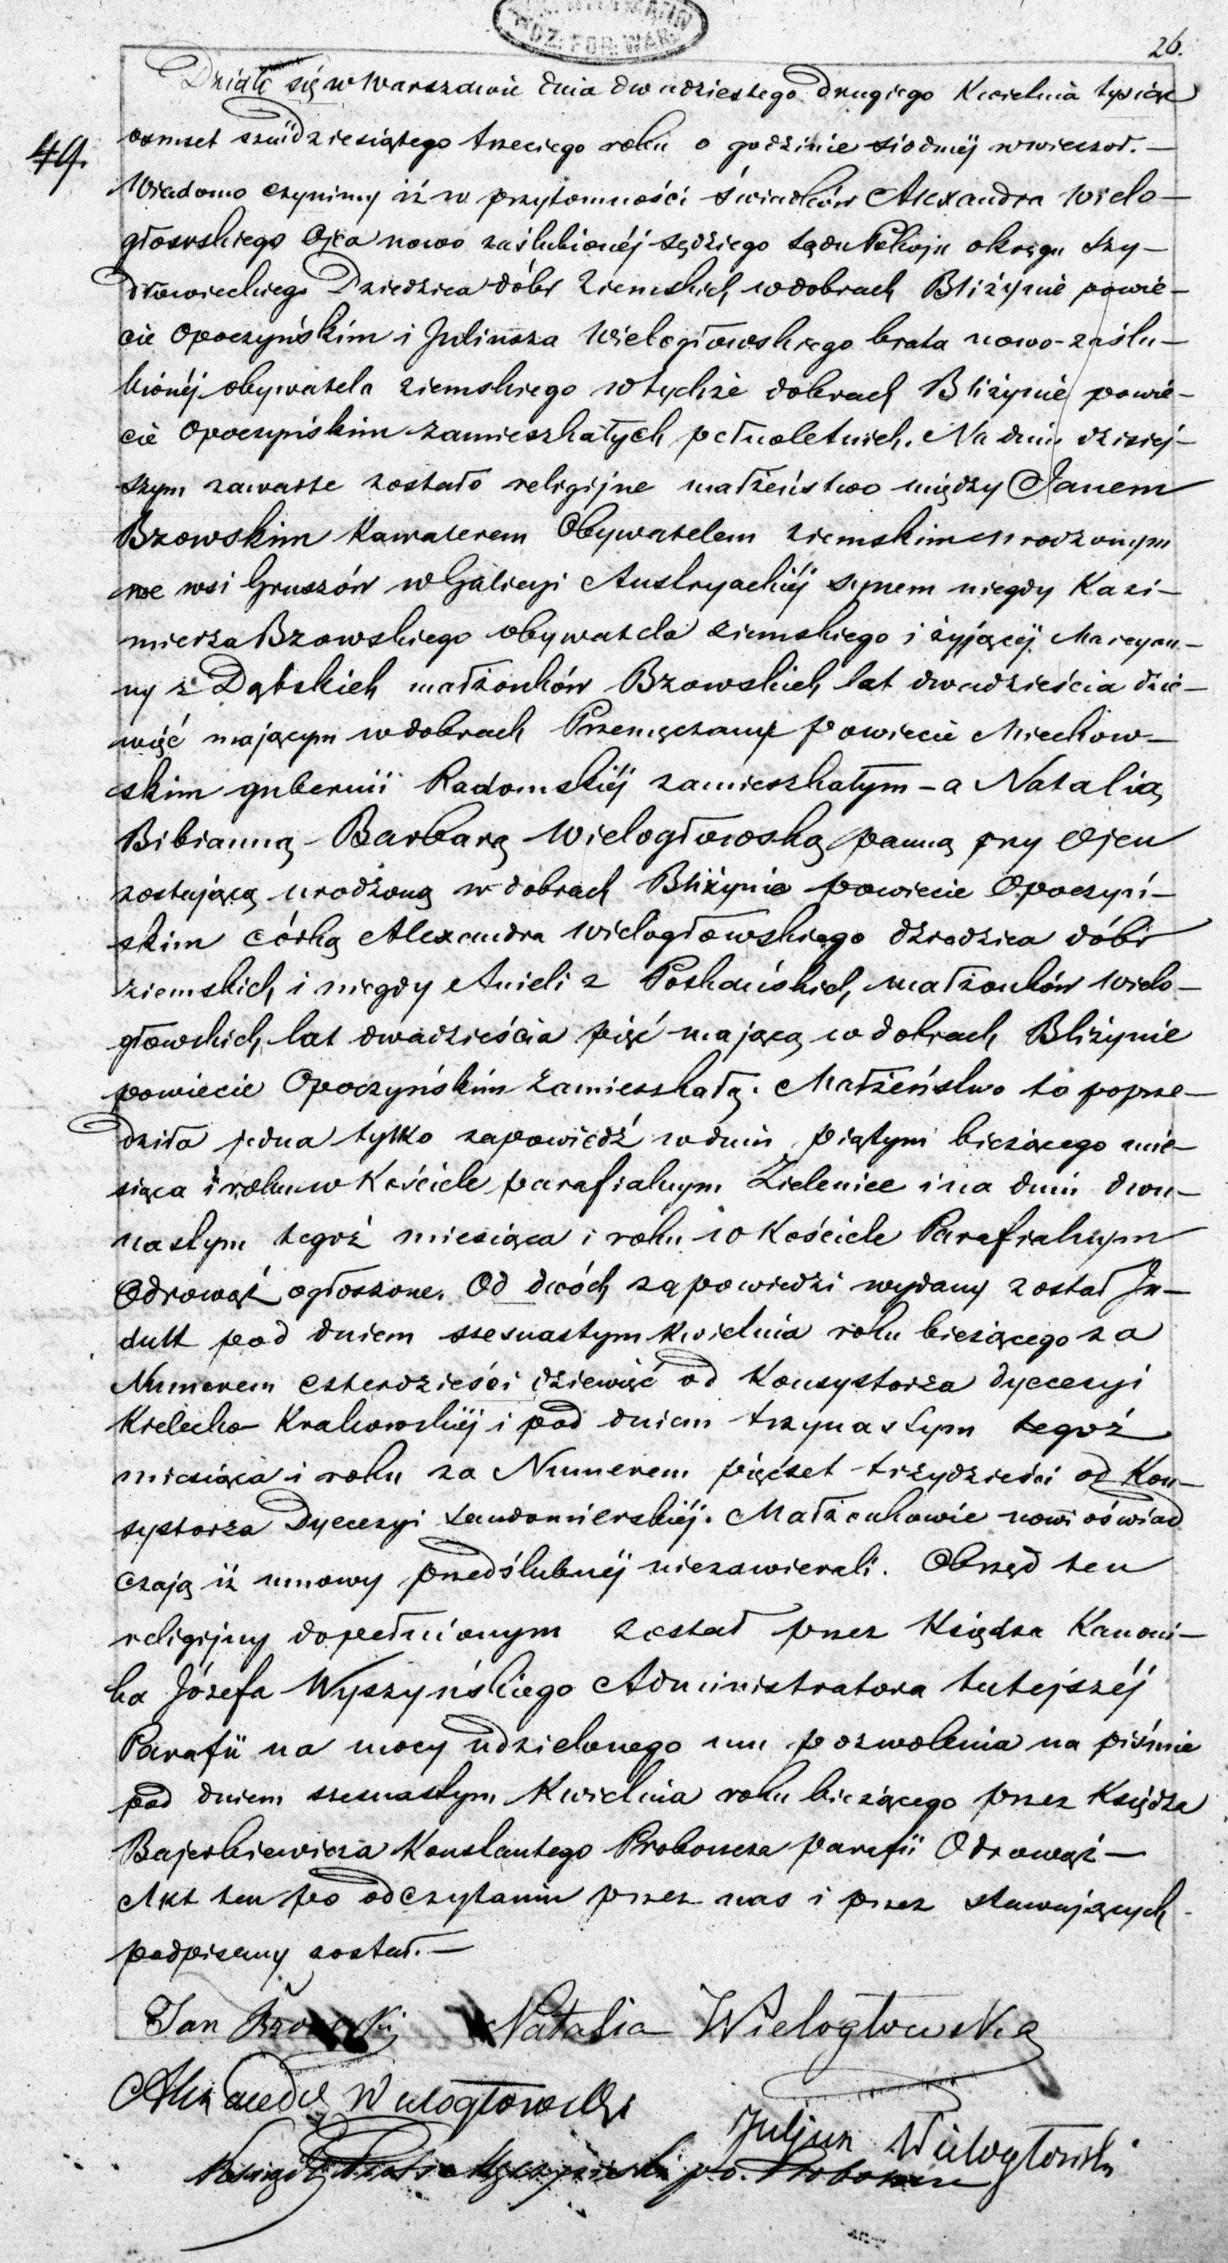 26.
Działo się w Warszawie dnia dwudziestego drugiego Kwietnia tysiąc
49.
osmset sześćdziesiątego trzeciego roku o godzinie siodmej wwieczor. —
Wiadomo czynimy iż w przytomności świadków Alexandra Wielo—
głowskiego Ojca nowo zaślubionéj Sędziego Sądu Pokoju okręgu Szy—
dłowieckiego Dziedzica dóbr Ziemskich w dobrach Bliżynie powie—
cie Opoczyńskim i Juliusza Wielogłowskiego brata nowo-zaślu—
bionéj obywatela ziemskiego w tychże dobrach Bliżynie powie—
cie Opoczyńskim zamieszkałych pełnoletnich. Na dniu dzisiej—
szym zawarte zostało religijne małżeństwo między Janem
Bzowskim Kawalerem Obywatelem ziemskim urodzonym
we wsi Gruszów w Galicyi Austryackiéj synem niegdy Kazi—
mierza Bzowskiego obywatela ziemskiego i żyjącéj Maryan—
ny z Dąbskich małżonków Bzowskich lat dwadzieścia dzie—
więć mającym w dobrach Przemęczany Powiecie Miechow—
skim gubernii Radomskiéj zamieszkałym — a Natalią
Bibianną Barbarą Wielogłowską panną przy Ojcu
zostającą urodzoną w dobrach Bliżynie powiecie Opoczyń—
skim córką Alexandra Wielogłowskiego dziedzica dóbr
ziemskich i niegdy Anieli z Poskańskich małżonków Wielo—
głowskich lat dwadzieścia pięć mającą w dobrach Bliżynie
powiecie Opoczyńskim zamieszkałą. Małżeństwo to poprze—
dziła jedna tylko zapowiedź w dniu piątym bieżącego mie—
siąca i roku w Kościele parafialnym Zielenice i na dniu dwu—
nastym tegoż miesiąca i roku w Kościele Parafialnym
Odrowąż ogłoszone. Od dwóch zapowiedzi wydany został In—
dult pod dniem szesnastym Kwietnia roku bieżącego za
Numerem czterdzieści dziewięć od Konsystorza Dyecezyi
Kielecko Krakowskiéj i pod dniem trzynastym tegoż
miesiąca i roku za Numerem pięćset trzydzieści od Kon—
systorza Dyecezyi Sandomierskiéj. Małżonkowie nowi oświad
czają iż umowy przedślubnéj niezawierali. Obrzęd ten
religijny dopełnionym został przez Księdza Kanoni—
ka Józefa Wyszyńskiego Administratora tutejszéj
Parafii na mocy udzielonego mu pozwolenia na piśmie
pod dniem szesnastym Kwietnia roku bieżącego przez Księdza
Bajerkiewicza Konstantego Proboszcza parafii Odrowąż —
Akt ten po odczytaniu przez nas i przez stawających
podpisany został. —
Jan Bzowski Natalia Wielogłowska
Alexander Wielogłowski
Juljusz Wielogłowski